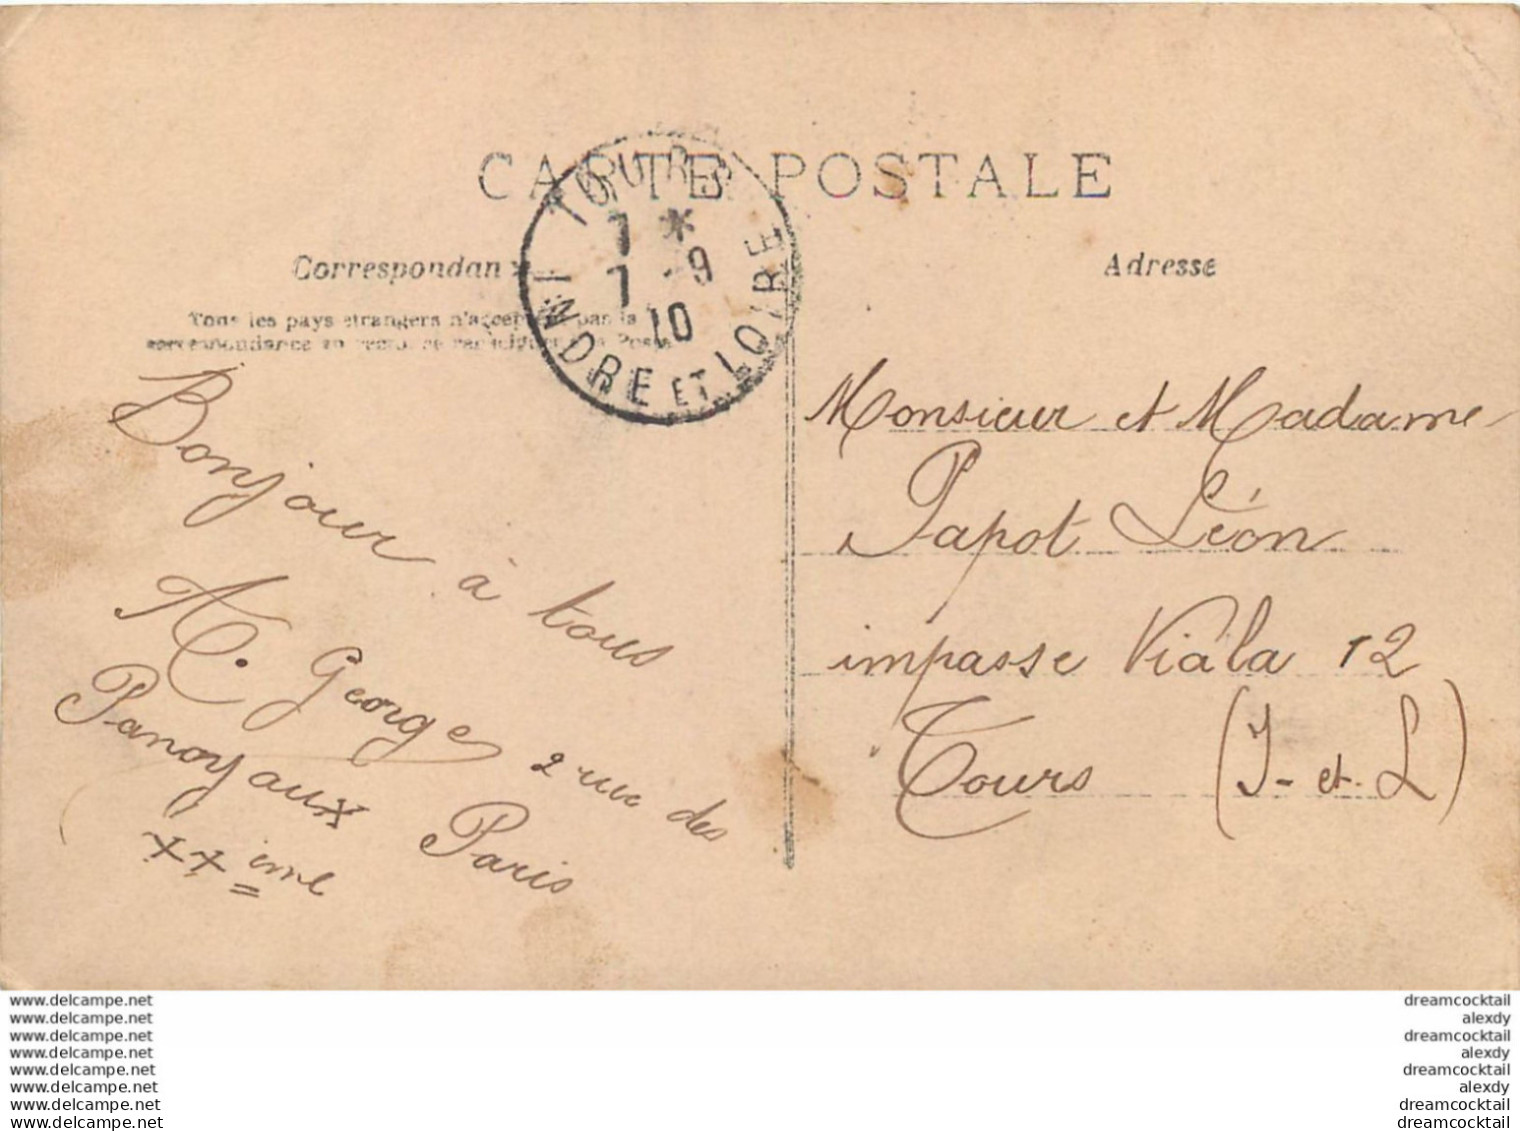 CARTE POSTALE
TOURS
7 *
7 - 9
10
INDRE ET LOIRE
Correspondan
Adresse
Tous les pays etrangers n'acceptent pas la
correspondance au
Bonjour à tous
George 2 rue des
Panoyaux Paris
XXème
Monsieur et Madame
Papot Léon
impasse Viala 12
Tours (I-et-L)
www.delcampe.net
www.delcampe.net
www.delcampe.net
www.delcampe.net
www.delcampe.net
www.delcampe.net
www.delcampe.net
www.delcampe.net
dreamcocktail
alexdy
dreamcocktail
alexdy
dreamcocktail
alexdy
dreamcocktail
dreamcocktail